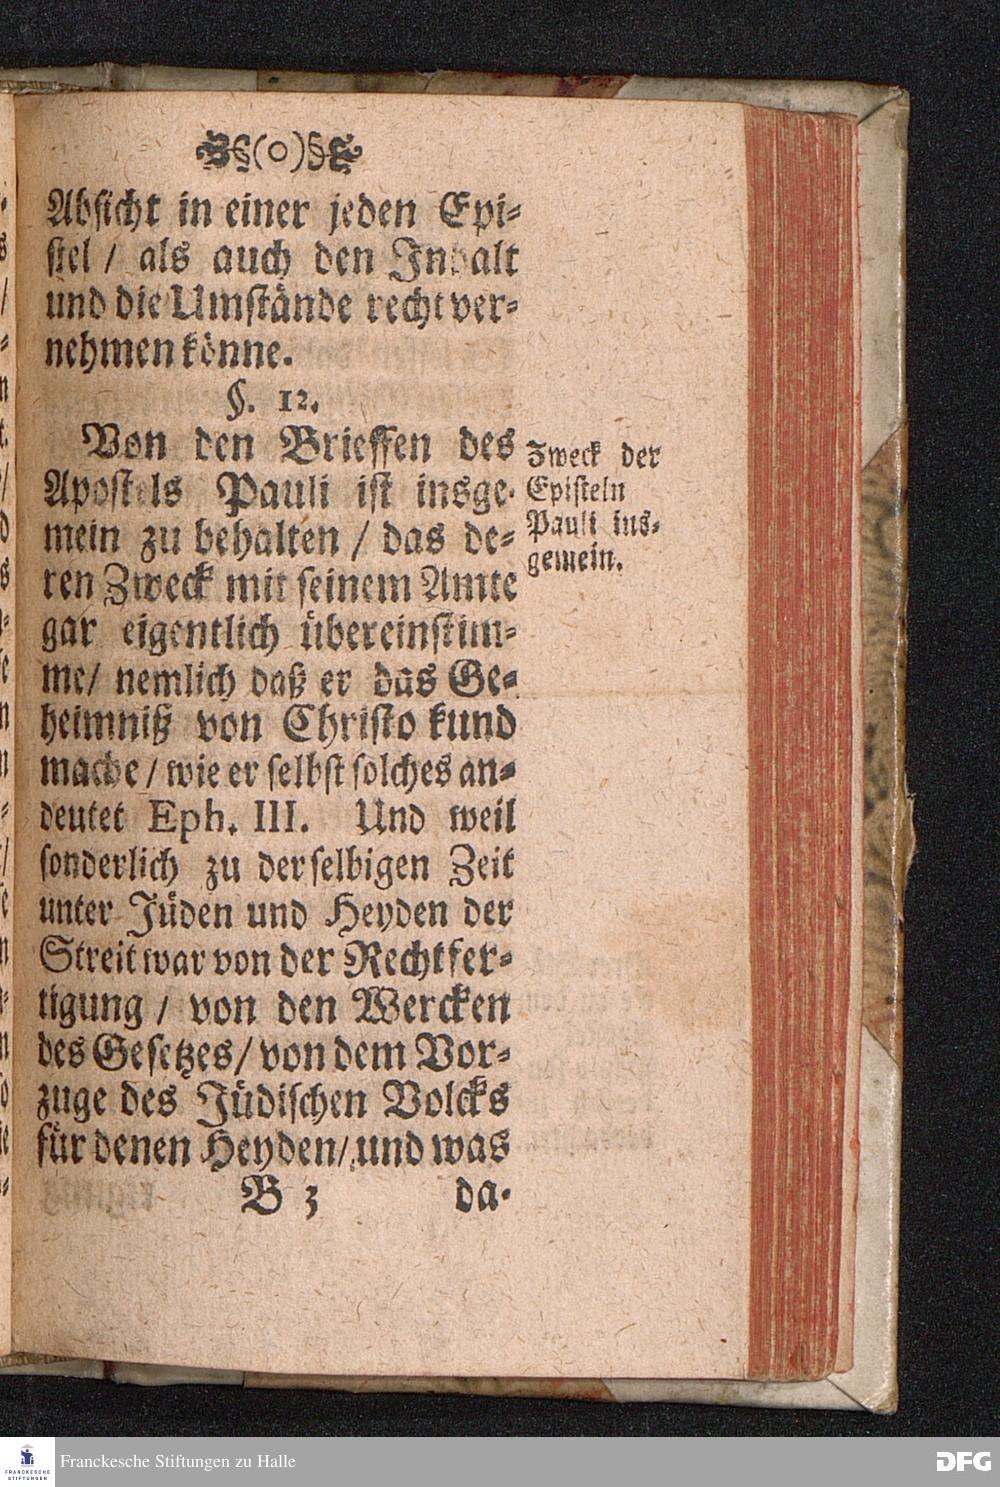 §(o)§
Absicht in einer jeden Epi-
stel / als auch den Inhalt
und die Umstände recht ver-
nehmen könne.
§. 12.
Von den Brieffen des
Apostels Pauli ist insge-
mein zu behalten / das de-
ren Zweck mit seinem Amte
gar eigentlich übereinstim-
me / nemlich daß er das Ge-
heimniß von Christo kund
mache / wie er selbst solches an-
deutet Eph. III. Und weil
sonderlich zu derselbigen Zeit
unter Jüden und Heyden der
Streit war von der Rechtfer-
tigung / von den Wercken
des Gesetzes / von dem Vor-
zuge des Jüdischen Volcks
für denen Heyden / und was
B 3 da-
Zweck der
Episteln
Pauli ins-
gemein.
FRANCKESCHE
STIFTUNGEN
Franckesche Stiftungen zu Halle
DFG